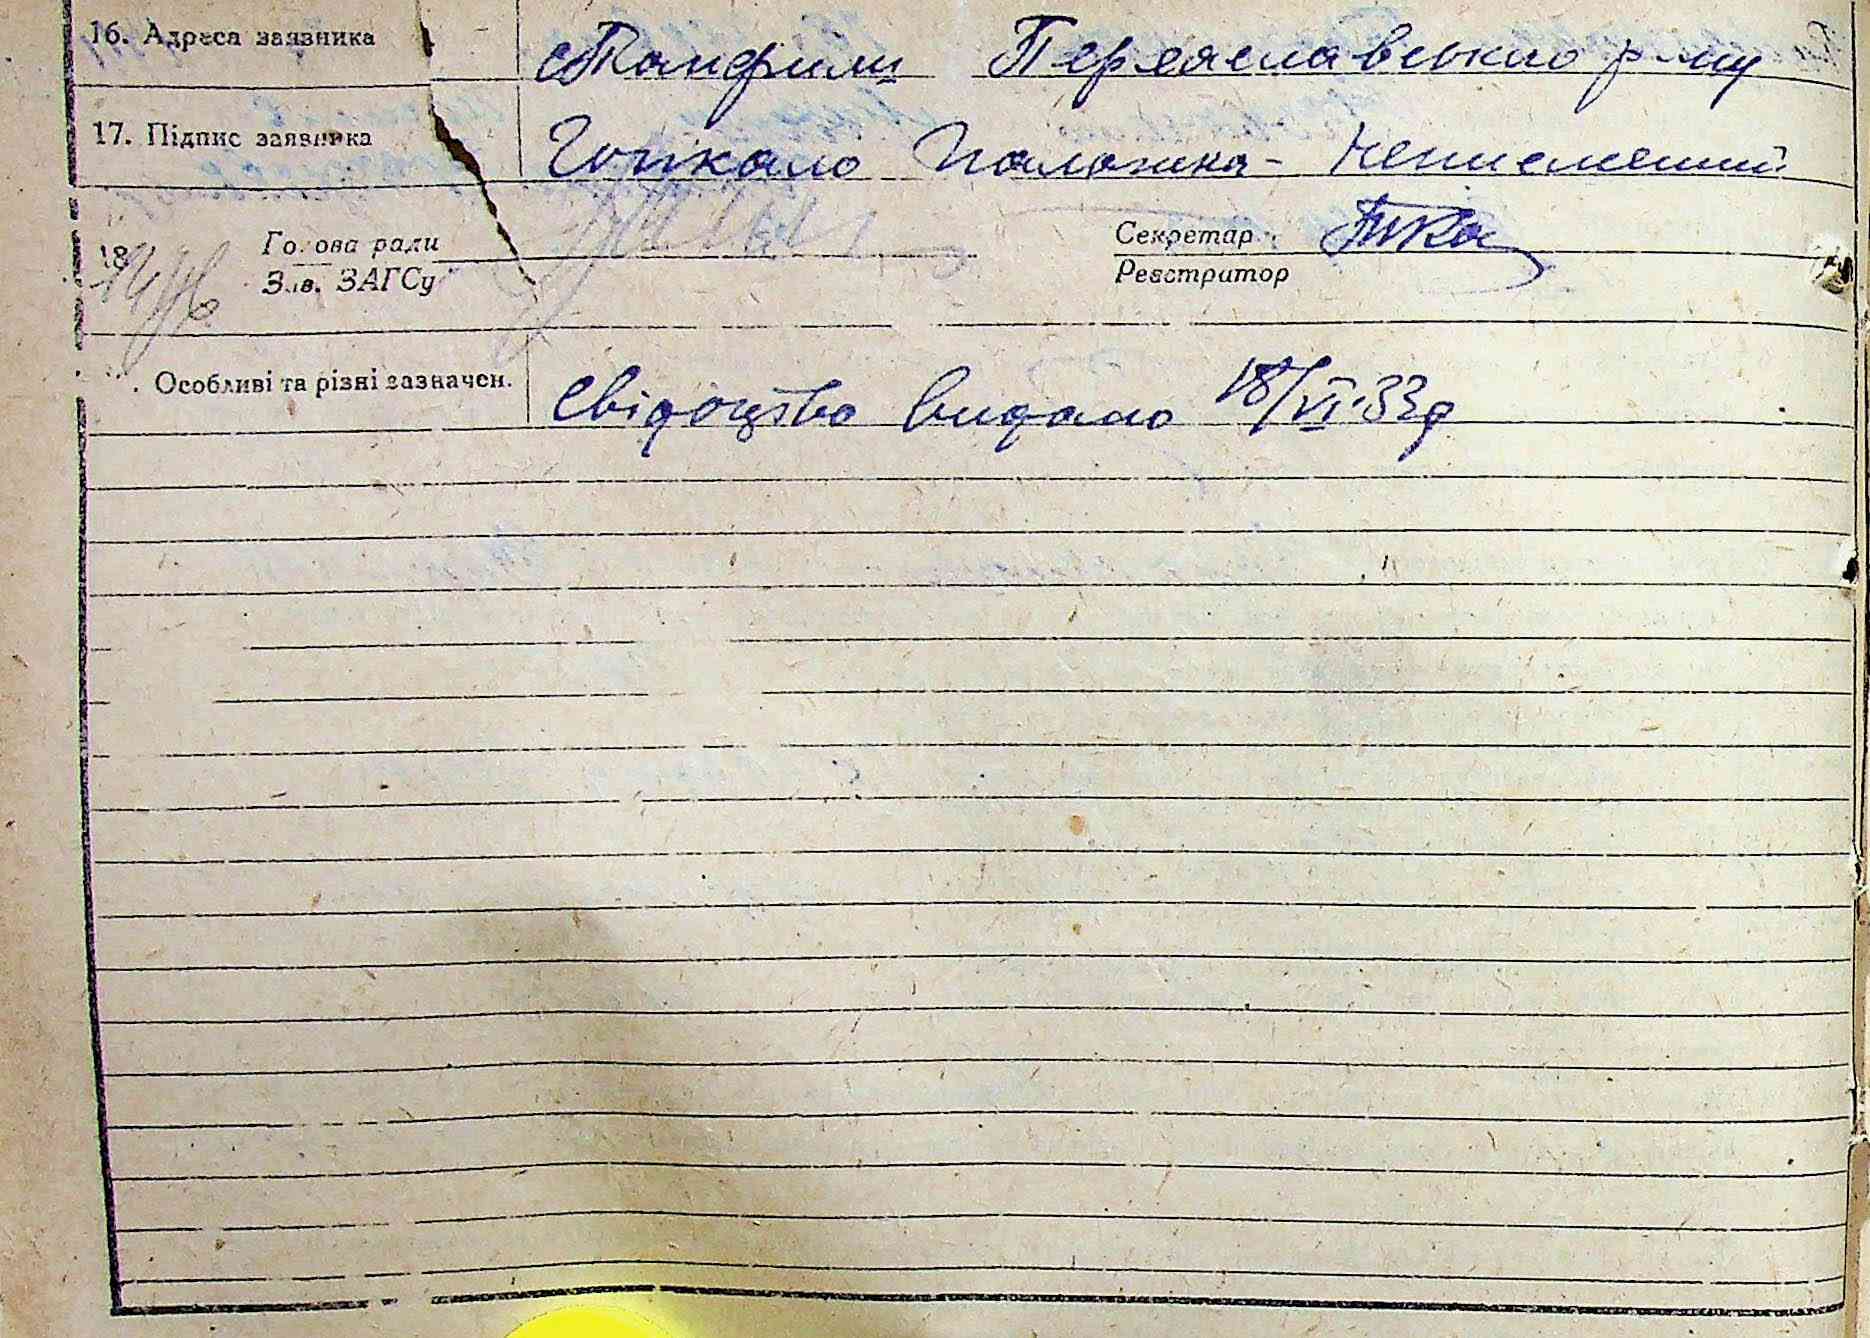 16. Адреса заявника с Панфили Переяславського р-ну
17. Підпис заявника Гопкало Палажка - неписьменний
18. Голова ради Секретар
Зав. ЗАГСу Реєстритор
Особливі та різні зазначен. Свідоцтво видано 18/VI-33р